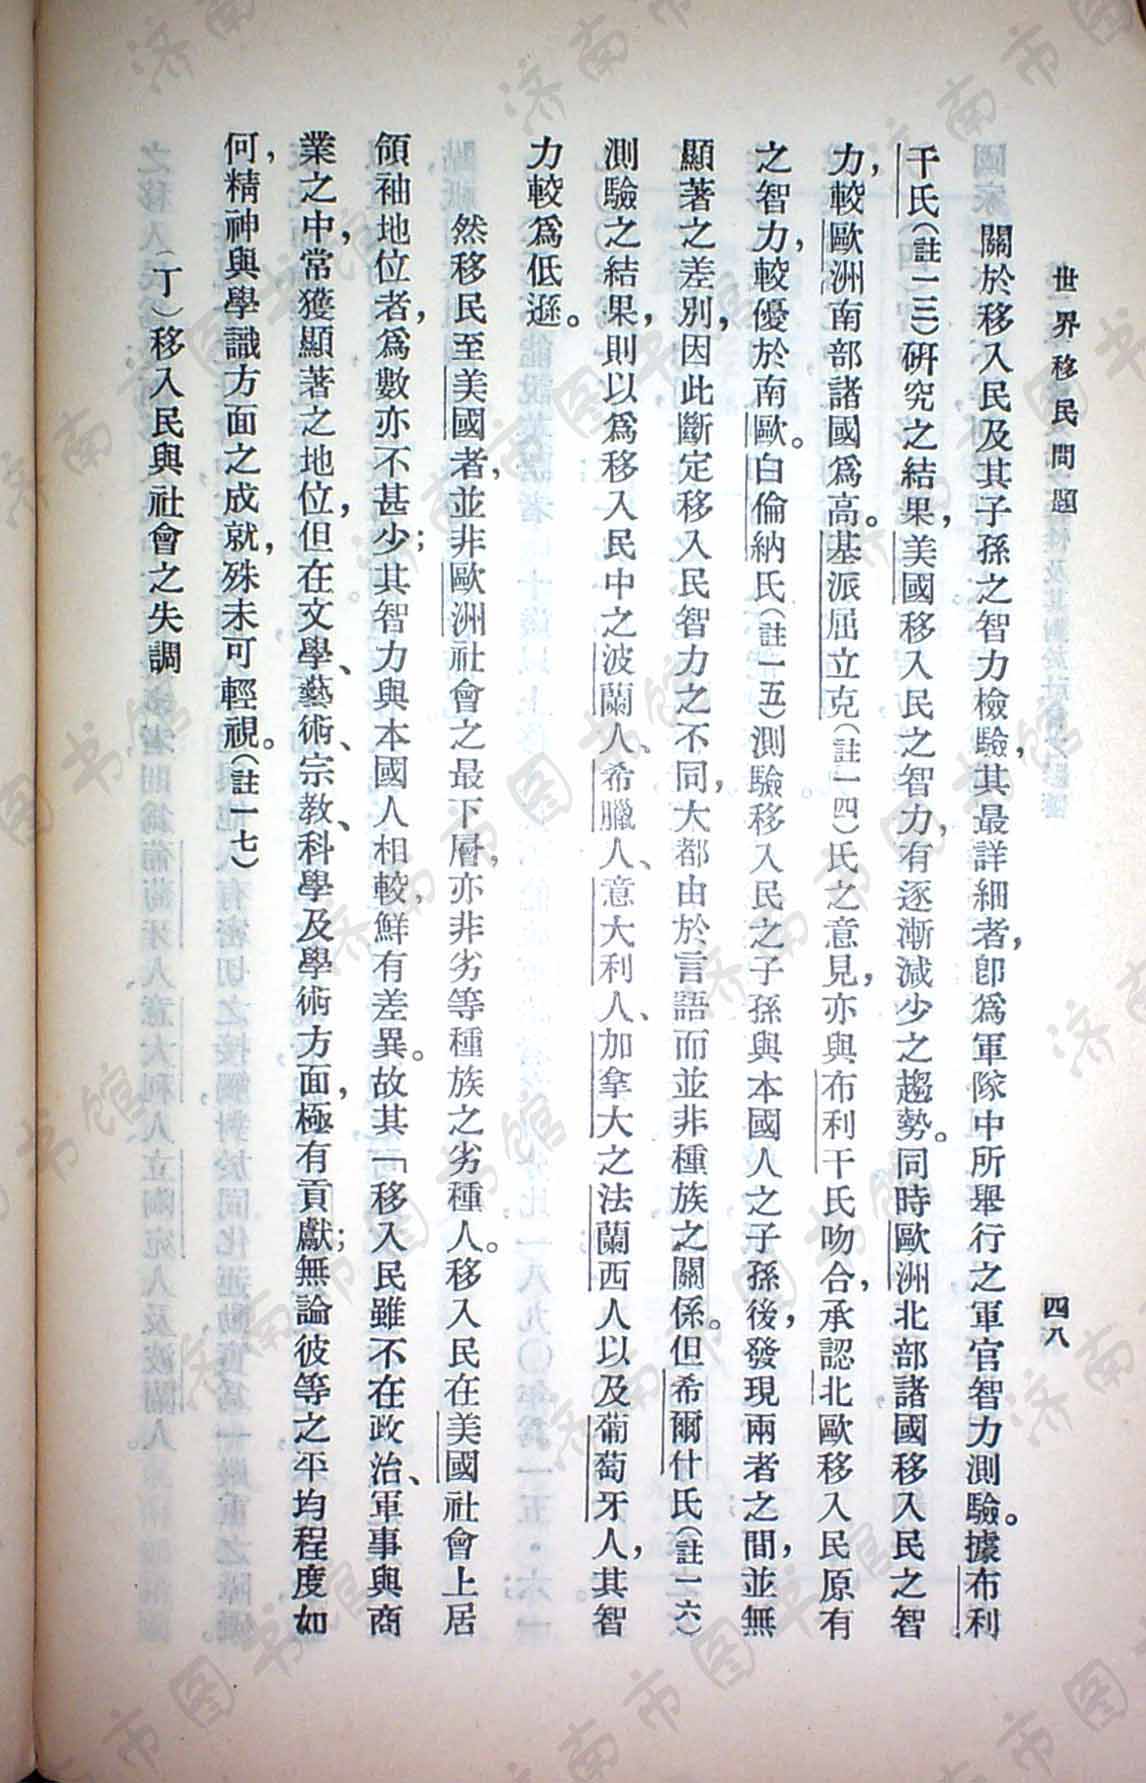 世界移民問題
四八
關於移入民及其子孫之智力檢驗，其最詳細者，卽爲軍隊中所舉行之軍官智力測驗。據布利
干氏（註一三）研究之結果，美國移入民之智力，有逐漸減少之趨勢。同時歐洲北部諸國移入民之智
力，較歐洲南部諸國爲高。基派屈立克（註一四）氏之意見，亦與布利干氏吻合，承認北歐移入民原有
之智力，較優於南歐。白倫納氏（註一五）測驗移入民之子孫與本國人之子孫後，發現兩者之間，並無
顯著之差別，因此斷定移入民智力之不同，大都由於言語而並非種族之關係。但希爾什氏（註一六）
測驗之結果，則以爲移入民中之波蘭人、希臘人、意大利人、加拿大之法蘭西人以及葡萄牙人，其智
力較爲低遜。
然移民至美國者，並非歐洲社會之最下層，亦非劣等種族之劣種人。移入民在美國社會上居
領袖地位者，爲數亦不甚少；其智力與本國人相較，鮮有差異。故其「移入民雖不在政治、軍事與商
業之中，常獲顯著之地位，但在文學、藝術、宗教、科學及學術方面，極有貢獻；無論彼等之平均程度如
何，精神與學識方面之成就，殊未可輕視。（註一七）
（丁）移入民與社會之失調
济南市图书馆